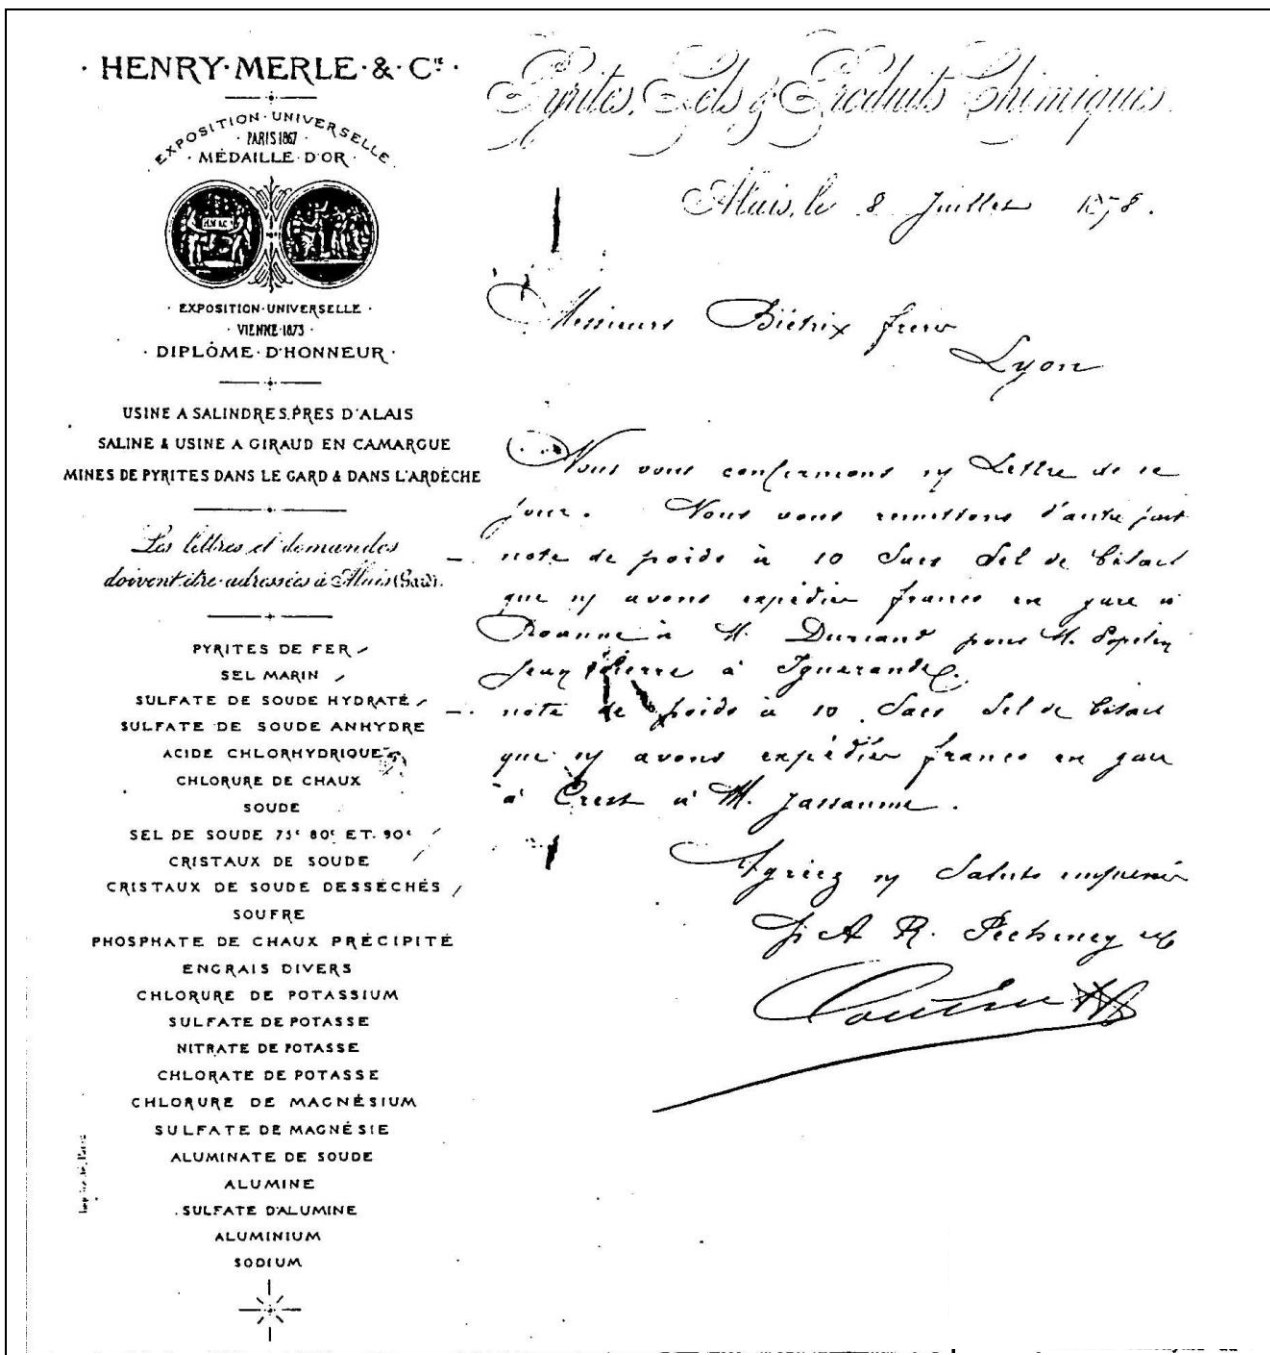 · HENRY·MERLE·&·Cie ·
EXPOSITION·UNIVERSELLE
· PARIS 1867 ·
· MÉDAILLE·D'OR ·
· EXPOSITION·UNIVERSELLE ·
· VIENNE·1873 ·
· DIPLÔME·D'HONNEUR ·
USINE A SALINDRES.PRES D'ALAIS
SALINE & USINE A GIRAUD EN CAMARGUE
MINES DE PYRITES DANS LE GARD & DANS L'ARDÈCHE
Les lettres et demandes
doivent être adressées à Alais (Gard).
PYRITES DE FER
SEL MARIN
SULFATE DE SOUDE HYDRATÉ
SULFATE DE SOUDE ANHYDRE
ACIDE CHLORHYDRIQUE
CHLORURE DE CHAUX
SOUDE
SEL DE SOUDE 75c 80c ET. 90c
CRISTAUX DE SOUDE
CRISTAUX DE SOUDE DESSÉCHÉS
SOUFRE
PHOSPHATE DE CHAUX PRÉCIPITÉ
ENGRAIS DIVERS
CHLORURE DE POTASSIUM
SULFATE DE POTASSE
NITRATE DE POTASSE
CHLORATE DE POTASSE
CHLORURE DE MAGNÉSIUM
SULFATE DE MAGNÉSIE
ALUMINATE DE SOUDE
ALUMINE
SULFATE D'ALUMINE
ALUMINIUM
SODIUM
Pyrites, Sels & Produits Chimiques.
Alais, le 8 Juillet 1878.
Messieurs Biétrix frères
Lyon
Nous vous confirmons Lettre de ce
jour. Nous vous remettons d'autre part
– note de poids à 10 Sacs Sel de bétail
que avons expédiés franco en gare à
Roanne à M. Durand pour M.
Jean Pierre à Iguerande.
– note de poids à 10 Sacs Sel de bétail
que avons expédiés franco en gare
à Crest à M.
Agréez Saluts empressés
A R. Pechiney